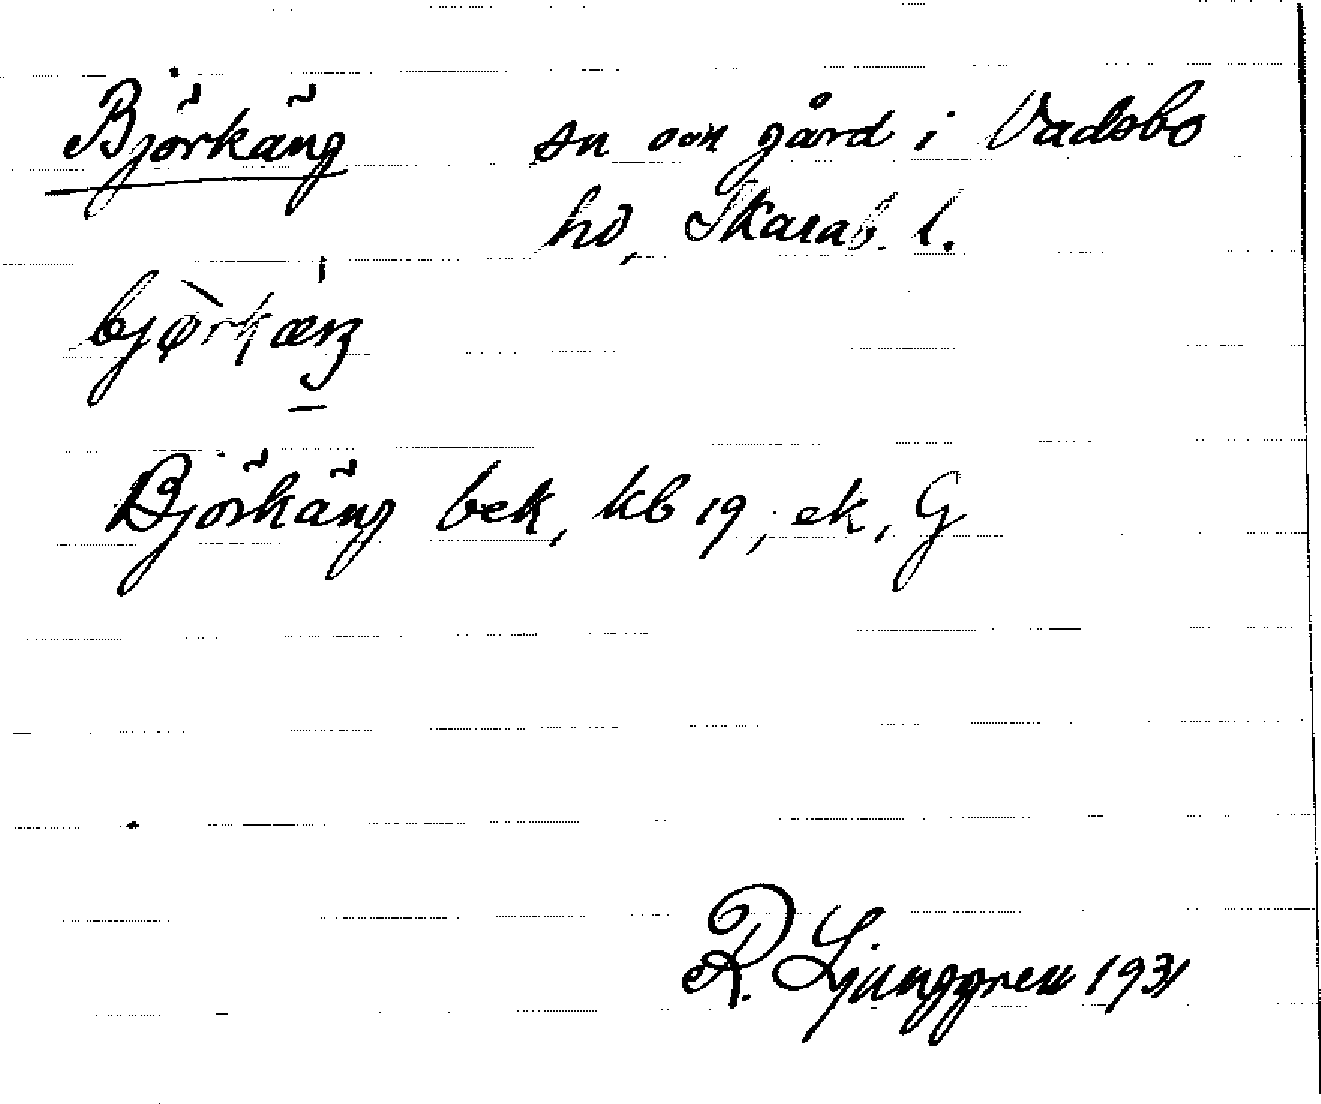 Björkäng sn och gård i Vadsbo
hd, Skarab. l.
bjørkæŋ
Björkäng bek, kb 19, ek, G
R. Ljunggren 1931